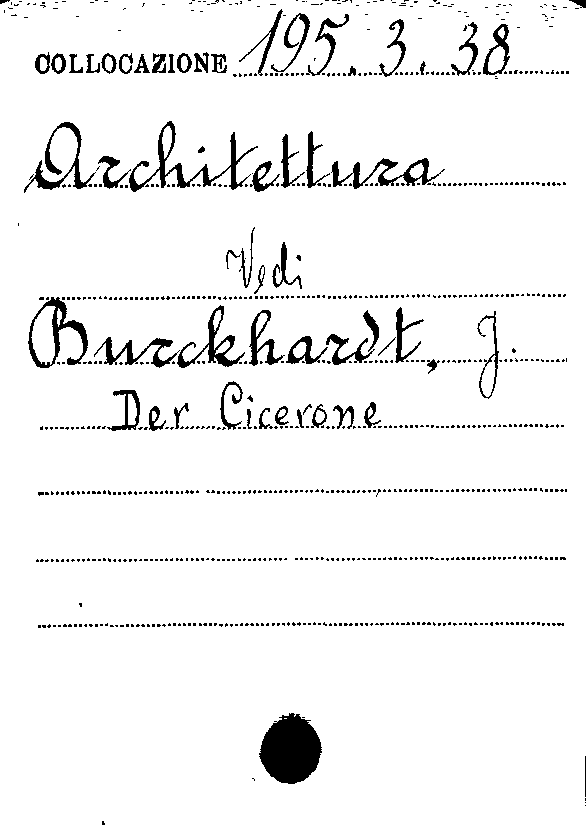 COLLOCAZIONE 195.3.38
Architettura
Vedi
Burckhardt, J.
Der Cicerone